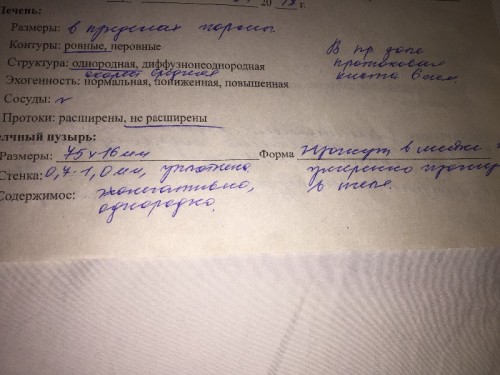 Печень: 20 18 г.
Размеры: в пределах нормы.
Контуры: ровные, неровные
Структура: однородная, диффузнонеоднородная
средняя
Эхогенность: нормальная, пониженная, повышенная
Сосуды: N
Протоки: расширены, не расширены
В пр доле
протоковая
киста 8 мм.
елчный пузырь:
Размеры: 75х16 мм Форма изогнут в шейке
Стенка: 0,7-1,0 мм, уплотнена умеренно
в теле.
Содержимое: эхонегативно,
однородно.